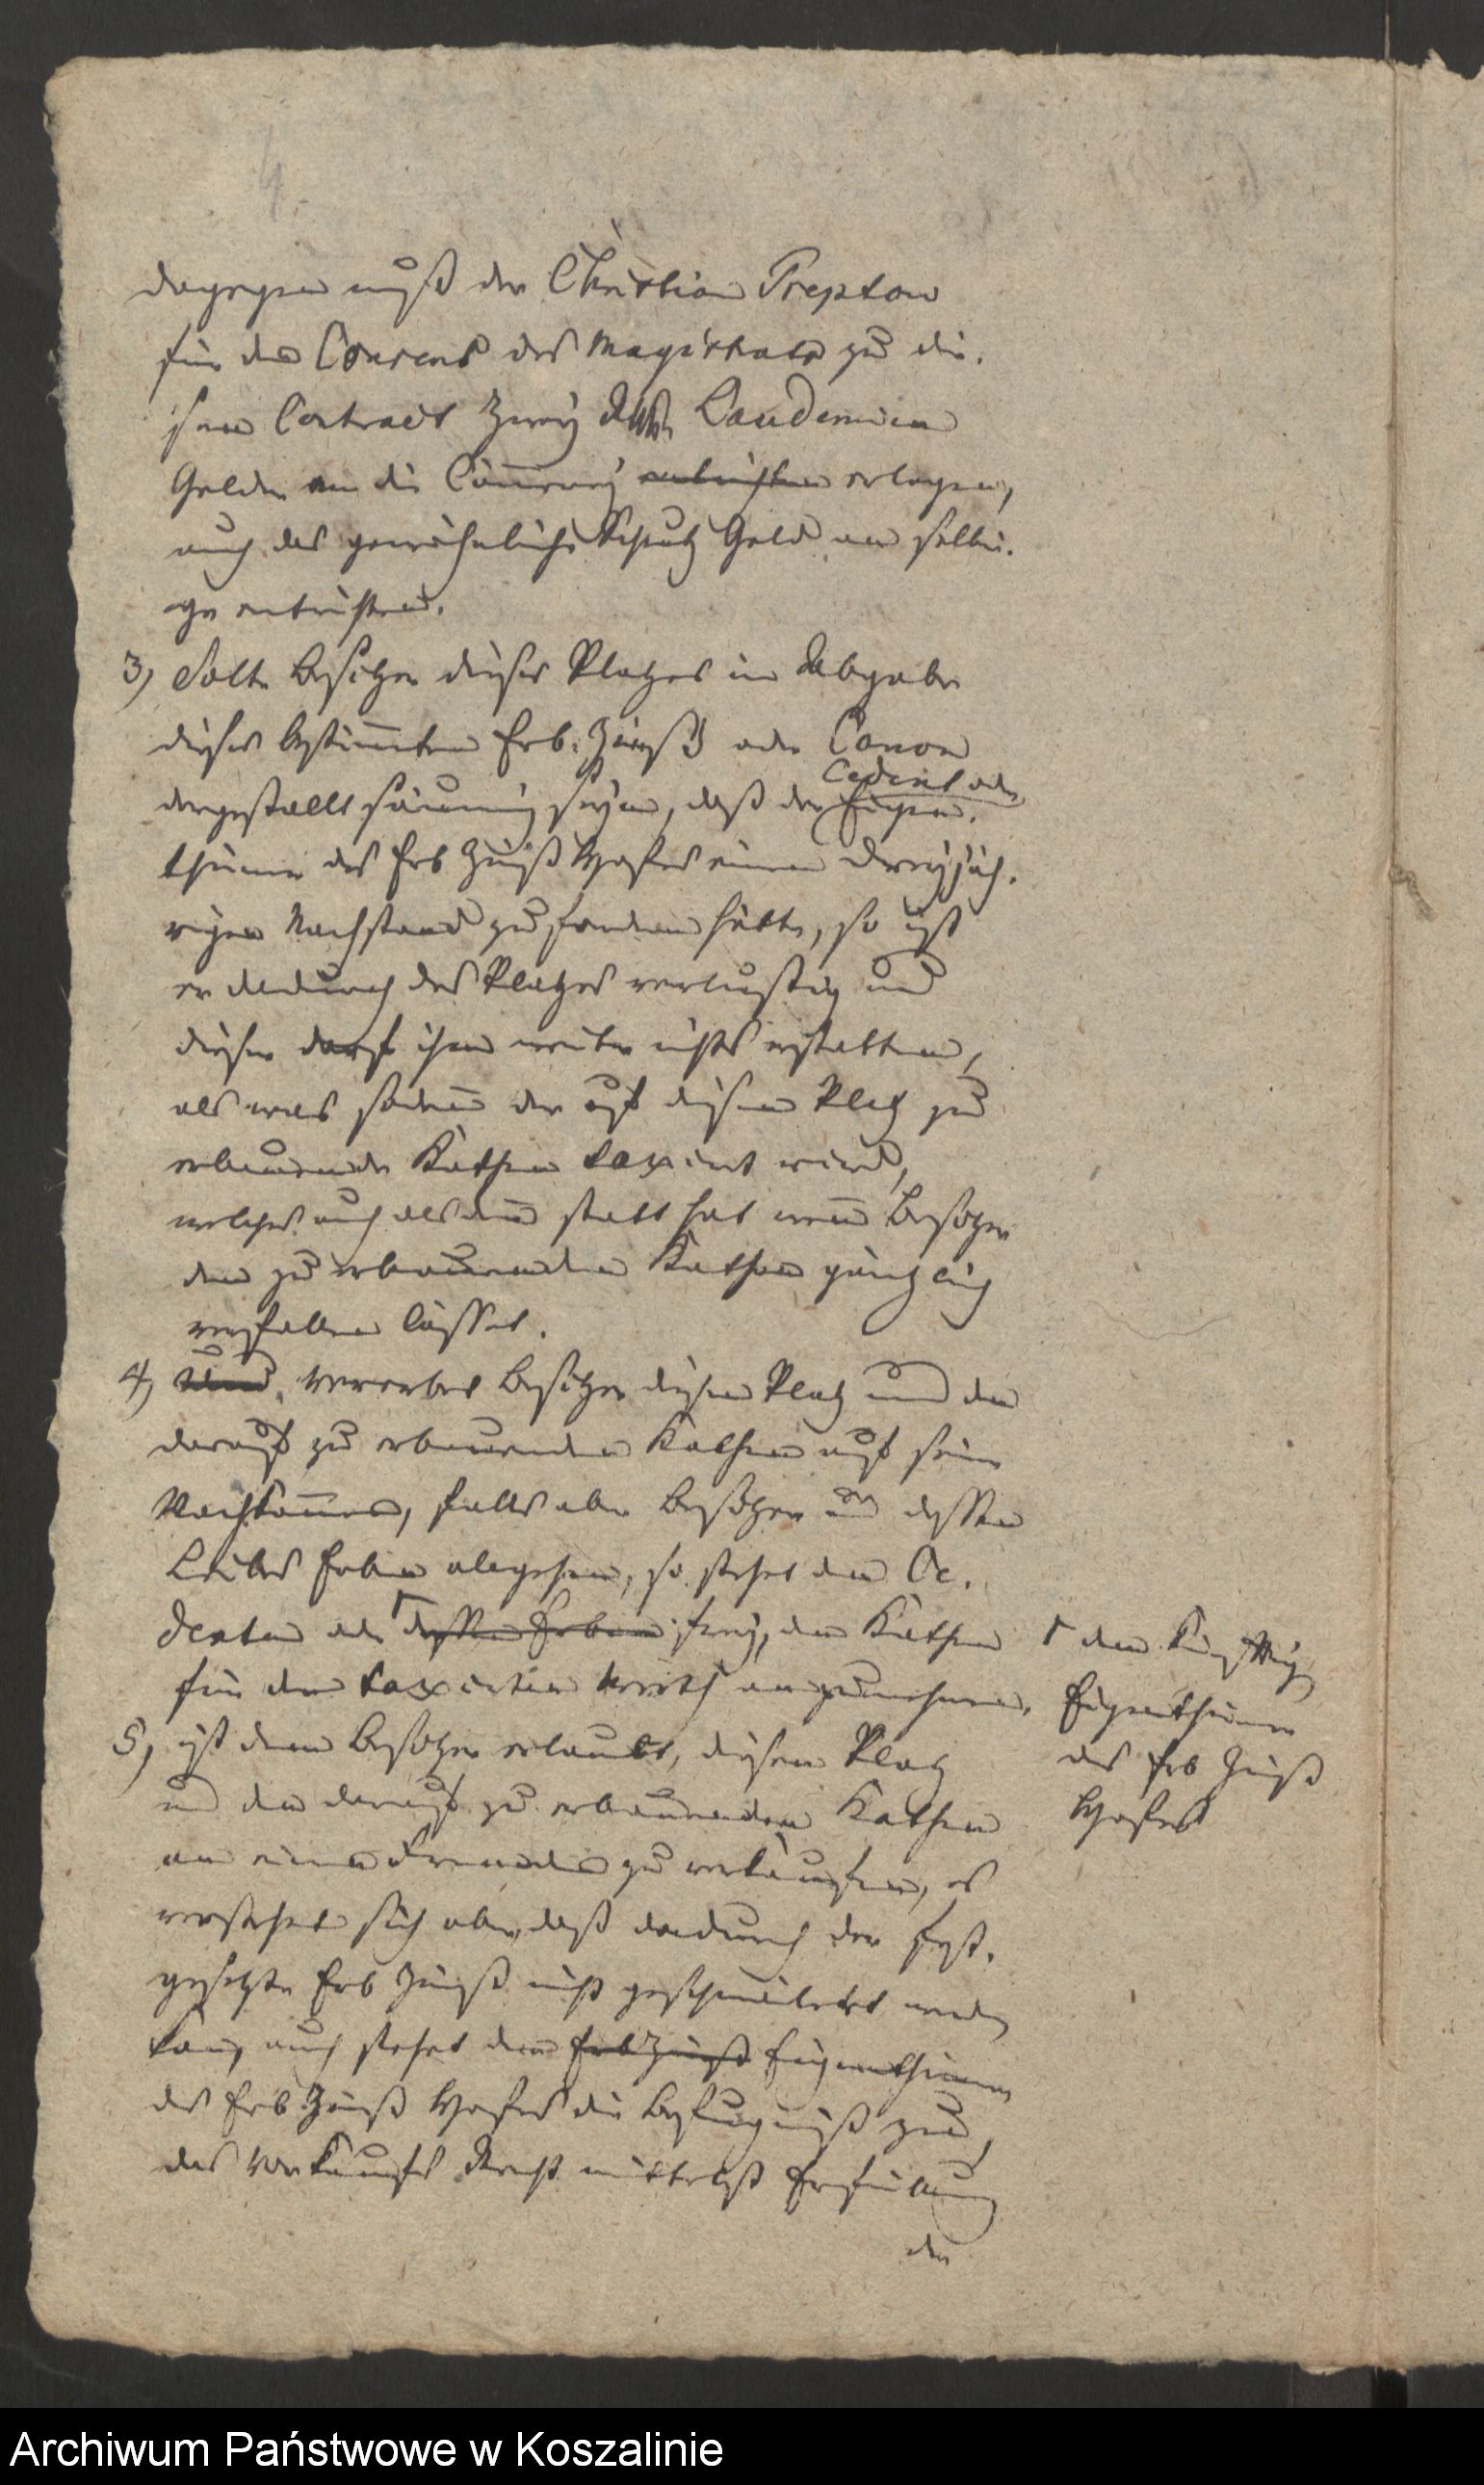 dagegen muß der Christian Treptow
für den Consens des Magistrats zu die-
sem Contract zwey Rthlr Laudemien
Gelder an die Cämmerey entrichten erlegen,
auch das gewöhnliche Schutz Geld an selbi-
ge entrichten.
3, Solte Besitzer dieses Platzes in Abgabe
dieses bestimmten Erb-Zinß oder Canon
dergestallt säumig seyn, daß der Cedent oder Eigen-
thümer des Erb Zinß Hofes einen dreyjäh-
rigen Nachstand zu fordern hätte, so ist
er dadurch des Platzes verlustig und
dieser darf ihm weiter nichts erstatten,
als was sodann der auf diesem Platz zu
erbauende Kathen taxirt wird,
welches auch alsdann statt hat wenn Besitzer
den zu erbauenden Kathen gänzlich
verfallen lässet.
4, Und vererbet Besitzer diesen Platz und den
darauf zu erbauenden Kathen auf seine
Nachkommen, falls aber Besitzer und dessen
Leibes Erben abgehen, so stehet dem Ce-
denten oder dessen Erben frey, den Kathen
für den taxirten Werth anzunehmen.
5, ist dem Besitzer erlaubt, diesen Platz
und den darauf zu erbauenden Kathen
an einen Fremden zu verkaufen, es
verstehet sich aber, daß dadurch der fest-
gesetzte Erb Zinß nicht geschmälert werden
kann, auch stehet dem Erb Zinß Eigenthümer
des Erb Zinß Hofes die Befugniß zu,
das Vorkaufs Recht mittelst Erfüllung
der
dem künfftigen
Eigenthümer
des Erb Zinß
Hofes
Archiwum Państwowe w Koszalinie